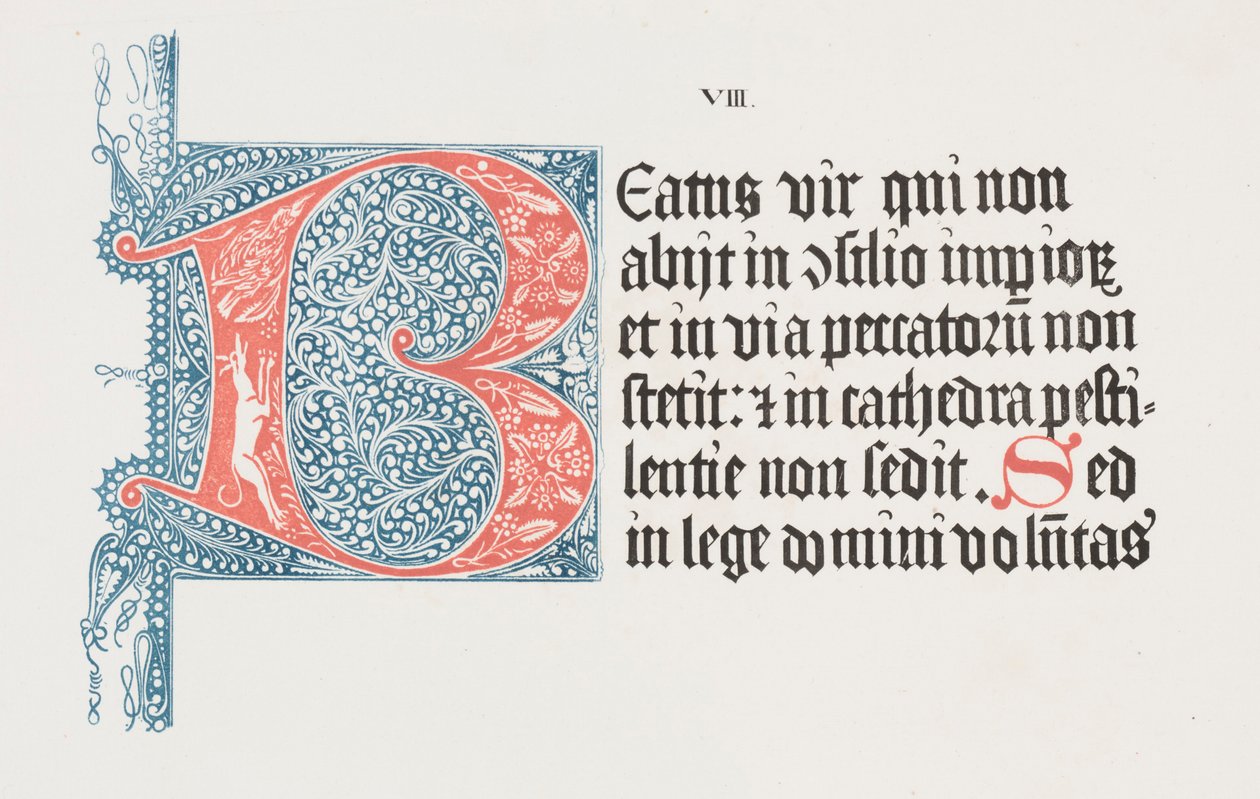 VIII.
BEatus vir qui non
abijt in ꝯsilio impioꝝ
et in via peccatorū non
stetit: ⁊ in cathedra pesti-
lentie non sedit. Sed
in lege domini volūtas